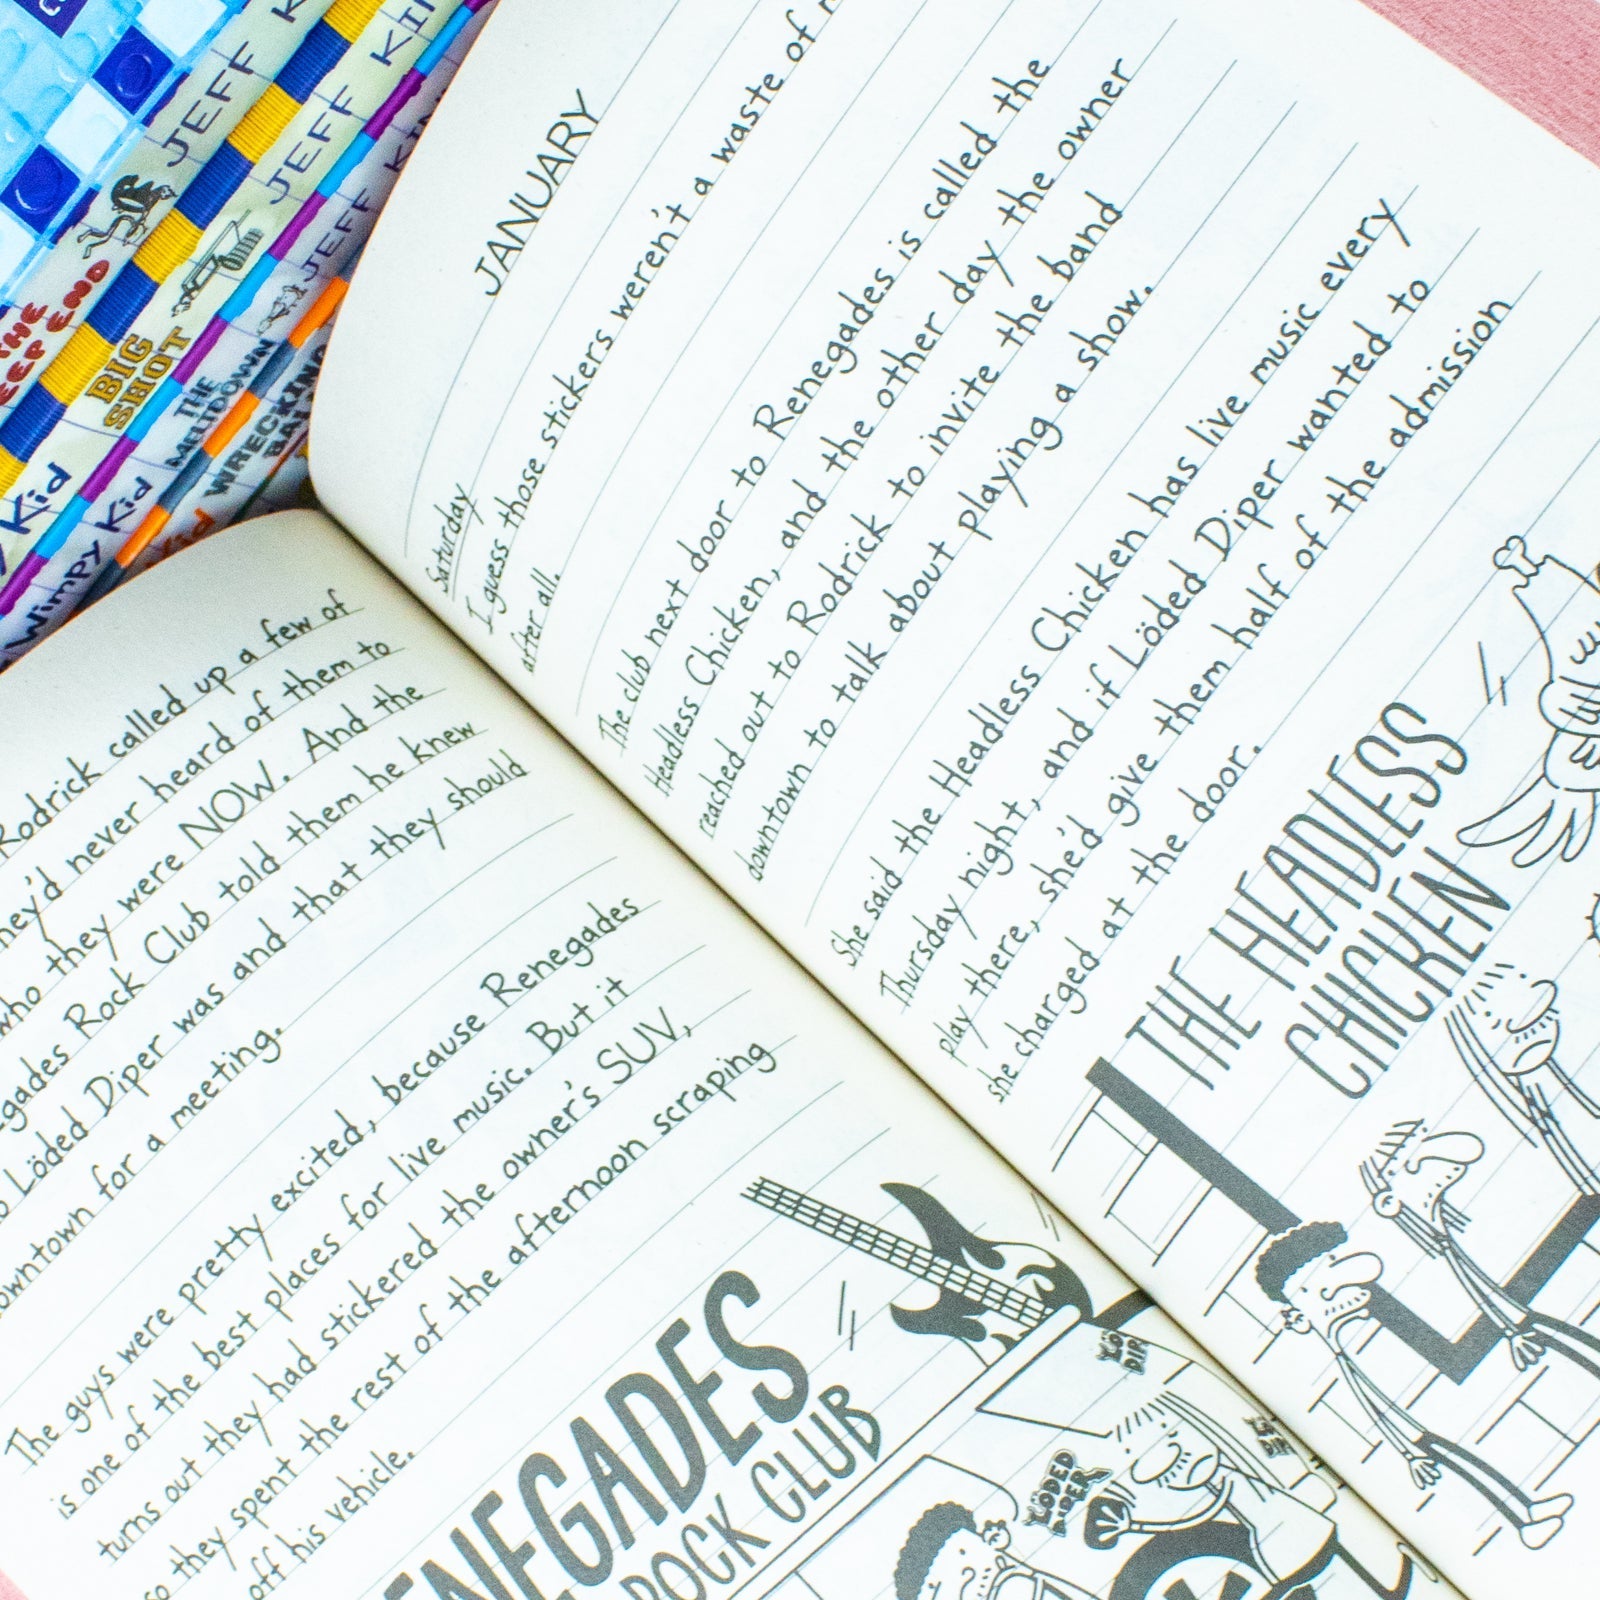 JEFF
THE
DEEP END
JEFF
KI
BIG
SHOT
Kid
JEFF
KIN
THE
MELTDOWN
Wimpy Kid
WRECKING
Kid
Rodrick called up a few of
they'd never heard of them to
who they were NOW. And the
Renegades Rock Club told them he knew
Löded Diper was and that they should
downtown for a meeting.
The guys were pretty excited, because Renegades
is one of the best places for live music. But it
turns out they had stickered the owner's SUV,
so they spent the rest of the afternoon scraping
off his vehicle.
RENEGADES
ROCK CLUB
LÖDED
DIPER
LÖ
DIP
JANUARY
Saturday
I guess those stickers weren't a waste of
after all.
The club next door to Renegades is called the
Headless Chicken, and the other day the owner
reached out to Rodrick to invite the band
downtown to talk about playing a show.
She said the Headless Chicken has live music every
Thursday night, and if Löded Diper wanted to
play there, she'd give them half of the admission
she charged at the door.
THE HEADLESS
CHICKEN